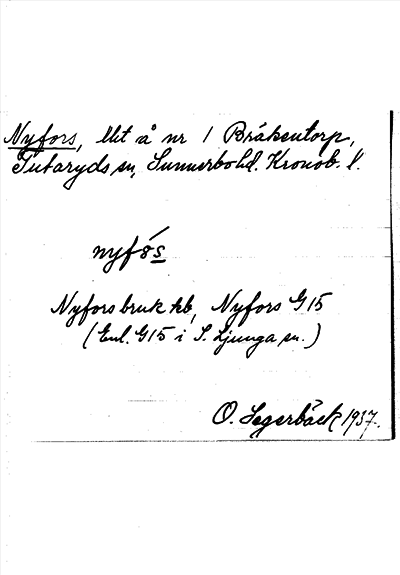 Nyfors, llt å nr 1 Bråkentorp,
Tutaryds sn, Sunnerbo hd. Kronob. l.
nyfós
Nyfors bruk kb, Nyfors G15
(Enl. G15 i S. Ljunga sn.)
O. Segerbäck 1937.